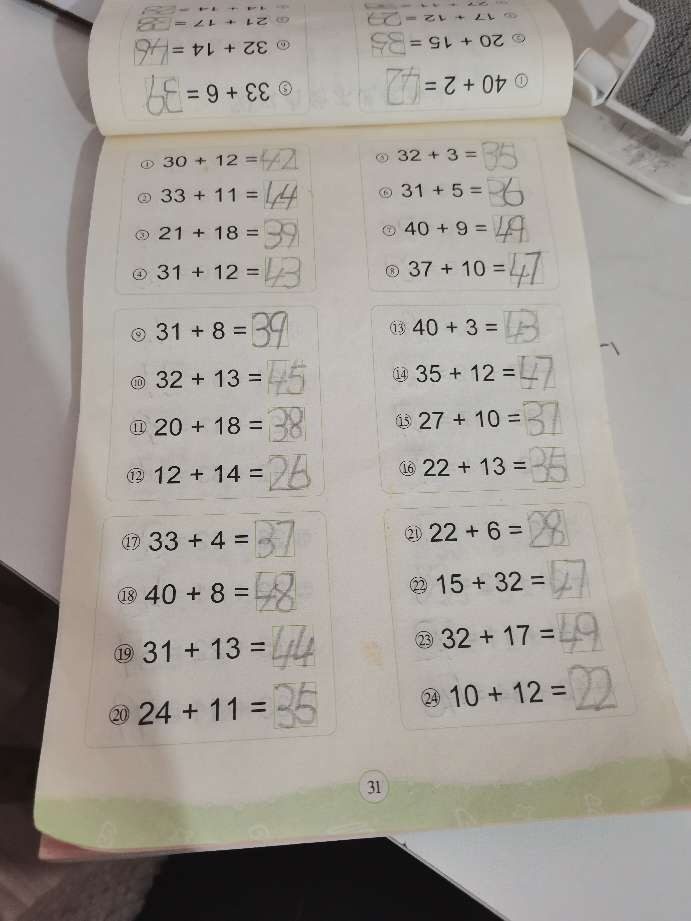 ⑤ 33 + 6 = 39
① 40 + 2 = 42
⑥ 32 + 14 = 46
② 20 + 15 = 35
21 + 17 =
17 + 12 =
① 30 + 12 = 42
② 33 + 11 = 44
③ 21 + 18 = 39
④ 31 + 12 = 43
⑤ 32 + 3 = 35
⑥ 31 + 5 = 36
⑦ 40 + 9 = 49
⑧ 37 + 10 = 47
⑨ 31 + 8 = 39
⑩ 32 + 13 = 45
⑪ 20 + 18 = 38
⑫ 12 + 14 = 26
⑬ 40 + 3 = 43
⑭ 35 + 12 = 47
⑮ 27 + 10 = 37
⑯ 22 + 13 = 35
⑰ 33 + 4 = 37
⑱ 40 + 8 = 48
⑲ 31 + 13 = 44
⑳ 24 + 11 = 35
㉑ 22 + 6 = 28
㉒ 15 + 32 = 47
㉓ 32 + 17 = 49
㉔ 10 + 12 = 22
31